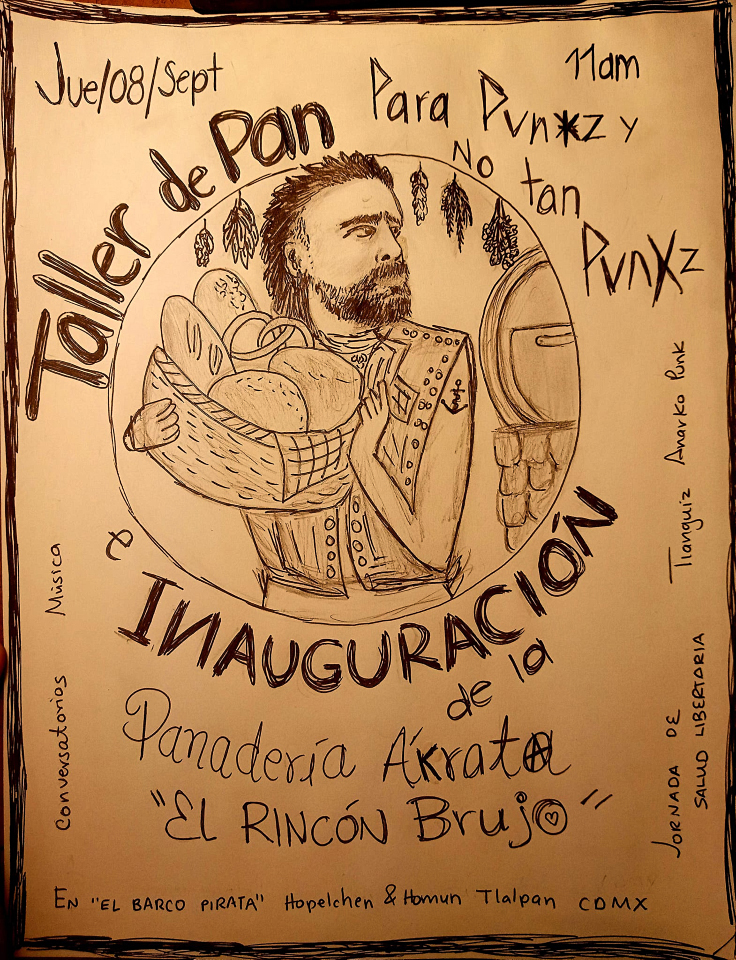 Jue/08/Sept
11am
Taller de Pan
Para Pvnxz y
No tan
Pvnxz
e
INAUGURACIÓN
de la
Panadería Ákrata
"EL RINCÓN Brujo"
Música
Conversatorios
Tianguiz Anarko Punk
JORNADA DE
SALUD LIBERTARIA
EN "EL BARCO PIRATA" Hopelchen & Homun Tlalpan CDMX